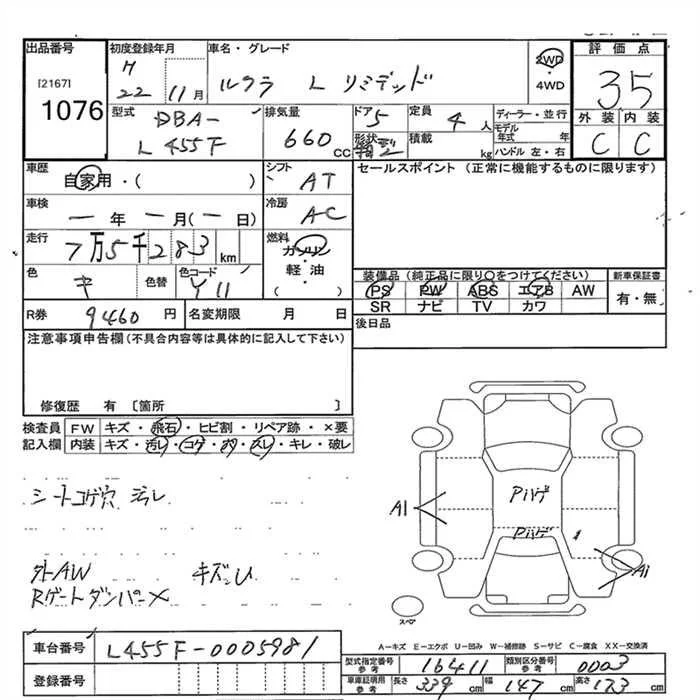 出品番号 初度登録年月 車名・グレード 2WD ・ 4WD 評価点
[2167] H 22年 11月 ルクラ L リミテッド 35
1076 型式 DBA- L455F 排気量 660 CC ドア 5 形状 定員 4人 積載 kg ディーラー・並行 モデル年式 年 ハンドル 左・右 外装 内装
C C
車歴 自家用・( ) シフト AT セールスポイント (正常に機能するものに限ります)
車検 一年一月(一日) 冷房 AC
走行 7万5千283 km 燃料 ガソリン ・ 軽油 ( )
色 キ 色替 色コード Y11 装備品 (純正品に限り○をつけてください) 新車保証書
PS PW ABS エアB AW 有・無
SR ナビ TV カワ
R券 9460 円 名変期限 月 日 後日品
注意事項申告欄 (不具合内容等は具体的に記入して下さい)
修復歴 有 〔箇所 〕
検査員記入欄 FW キズ・飛石・ヒビ割・リペア跡・×要
内装 キズ・汚レ・コゲ・穴・スレ・キレ・破レ
シートコゲ穴 汚レ
A1 Pハゲ
Pハゲ
外AW キズU
A1
Rゲートダンパー×
スペア
A-キズ E-エクボ U-凹み W-補修跡 S-サビ C-腐食 XX-交換済
車台番号 L455F-0005981
登録番号
型式指定番号 参考 16411 類別区分番号 参考 0003
車庫証明用 参考 長さ 339 cm 幅 147 cm 高さ 173 cm